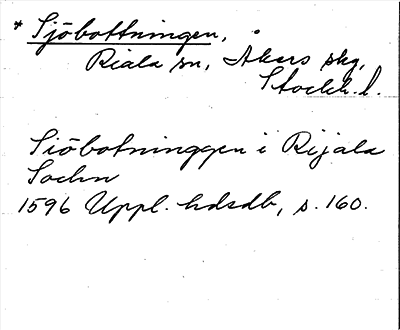 * Sjöbottningen,
Riala sn, Åkers skg,
Stockh. l.
Siöbotninggen i Rijala
Sochn
1596 Uppl. hdsdb, s. 160.